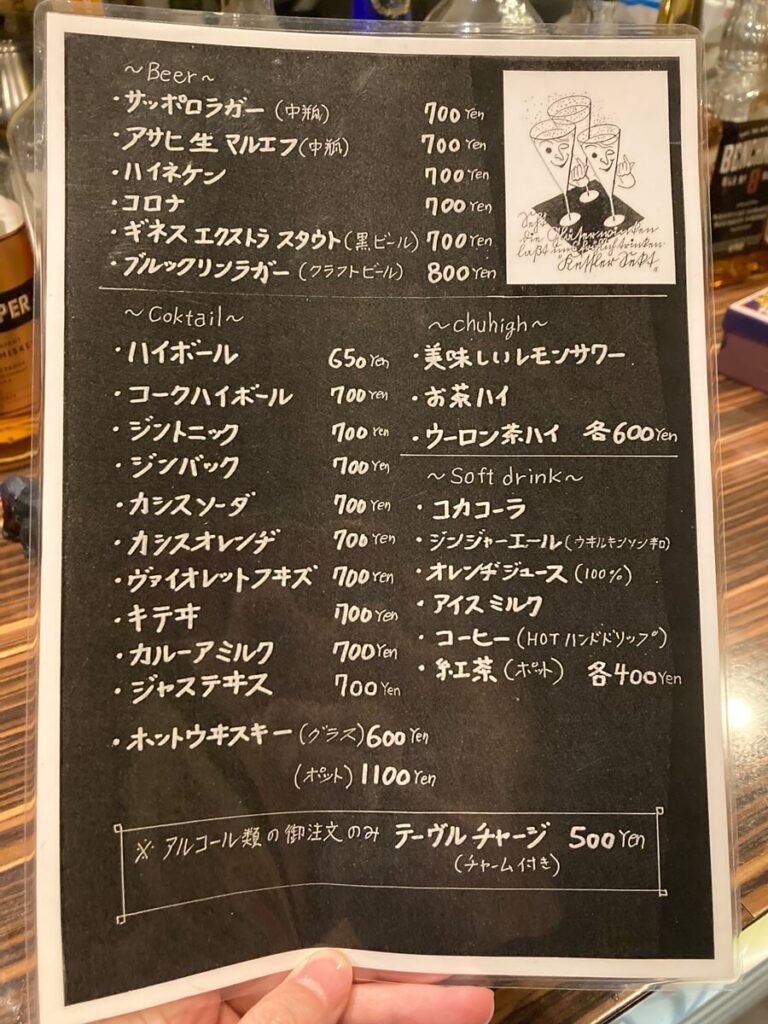 ~Beer~
・サッポロラガー(中瓶) 700Yen
・アサヒ生マルエフ(中瓶) 700Yen
・ハイネケン 700Yen
・コロナ 700Yen
・ギネス エクストラ スタウト(黒ビール) 700Yen
・ブルックリンラガー(クラフトビール) 800Yen
~Coktail~
・ハイボール 650Yen
・コークハイボール 700Yen
・ジントニック 700Yen
・ジンバック 700Yen
・カシスソーダ 700Yen
・カシスオレンヂ 700Yen
・ヴァイオレットフヰズ 700Yen
・キテヰ 700Yen
・カルーアミルク 700Yen
・ジャステヰス 700Yen
・ホットウヰスキー(グラス)600Yen
(ポット)1100Yen
~chuhigh~
・美味しいレモンサワー
・お茶ハイ
・ウーロン茶ハイ 各600Yen
~Soft drink~
・コカコーラ
・ジンジャーエール(ウヰルキンソン辛口)
・オレンヂジュース(100%)
・アイスミルク
・コーヒー(HOTハンドドリップ)
・紅茶(ポット) 各400Yen
※アルコール類の御注文のみ テーヴルチャージ 500Yen
(チャーム付き)
Sekt
laßt uns fröhlich trinken
Kessler Sekt.
PER
BENCHM
8